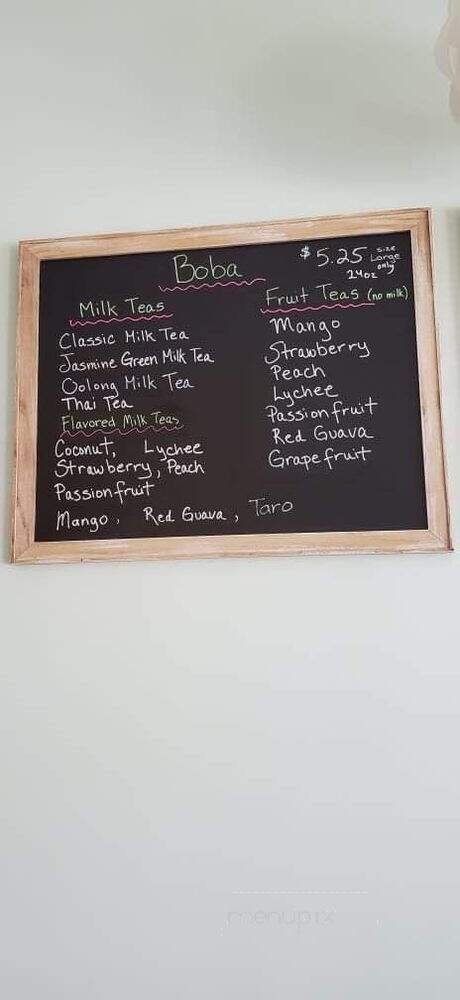 Boba
$5.25 size Large only
24oz
Milk Teas
Classic Milk Tea
Jasmine Green Milk Tea
Oolong Milk Tea
Thai Tea
Flavored Milk Teas
Coconut, Lychee
Strawberry, Peach
Passionfruit
Mango, Red Guava, Taro
Fruit Teas (no milk)
Mango
Strawberry
Peach
Lychee
Passionfruit
Red Guava
Grapefruit
menupix